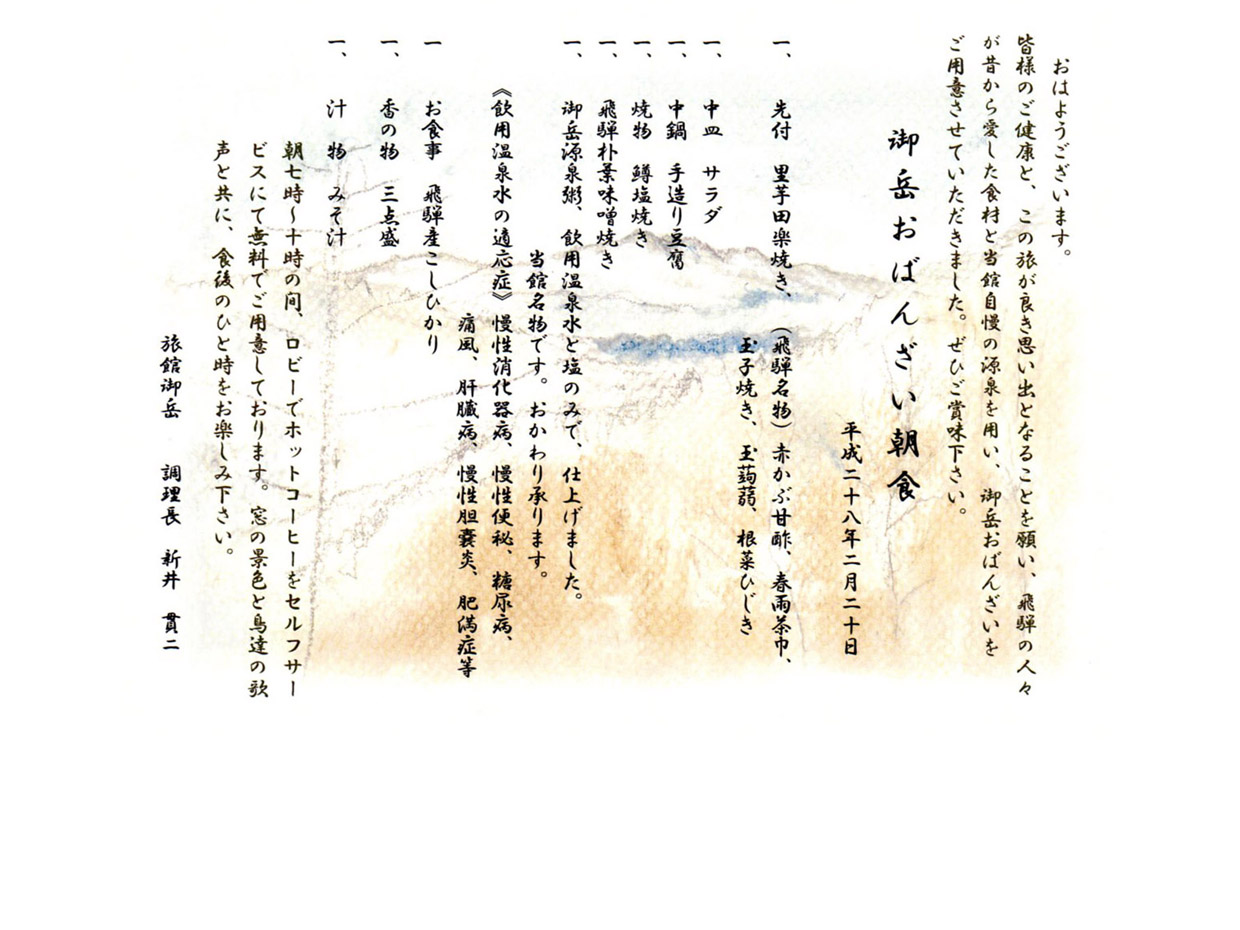 おはようございます。
皆様のご健康と、この旅が良き思い出となることを願い、飛騨の人々
が昔から愛した食材と当館自慢の源泉を用い、御岳おばんざいを
ご用意させていただきました。ぜひご賞味下さい。
御岳おばんざい朝食
平成二十八年二月二十日
一、 先付 里芋田楽焼き、(飛騨名物)赤かぶ甘酢、春雨茶巾、
玉子焼き、玉蒟蒻、根菜ひじき
一、 中皿 サラダ
一、 中鍋 手造り豆腐
一、 焼物 鱒塩焼き
一、 飛騨朴葉味噌焼き
一、 御岳源泉粥、飲用温泉水と塩のみで、仕上げました。
当館名物です。おかわり承ります。
《飲用温泉水の適応症》慢性消化器病、慢性便秘、糖尿病、
痛風、肝臓病、慢性胆嚢炎、肥満症等
一 お食事 飛騨産こしひかり
一、 香の物 三点盛
一、 汁 物 みそ汁
朝七時~十時の間、ロビーでホットコーヒーをセルフサー
ビスにて無料でご用意しております。窓の景色と鳥達の歌
声と共に、食後のひと時をお楽しみ下さい。
旅館御岳 調理長 新井 貫二